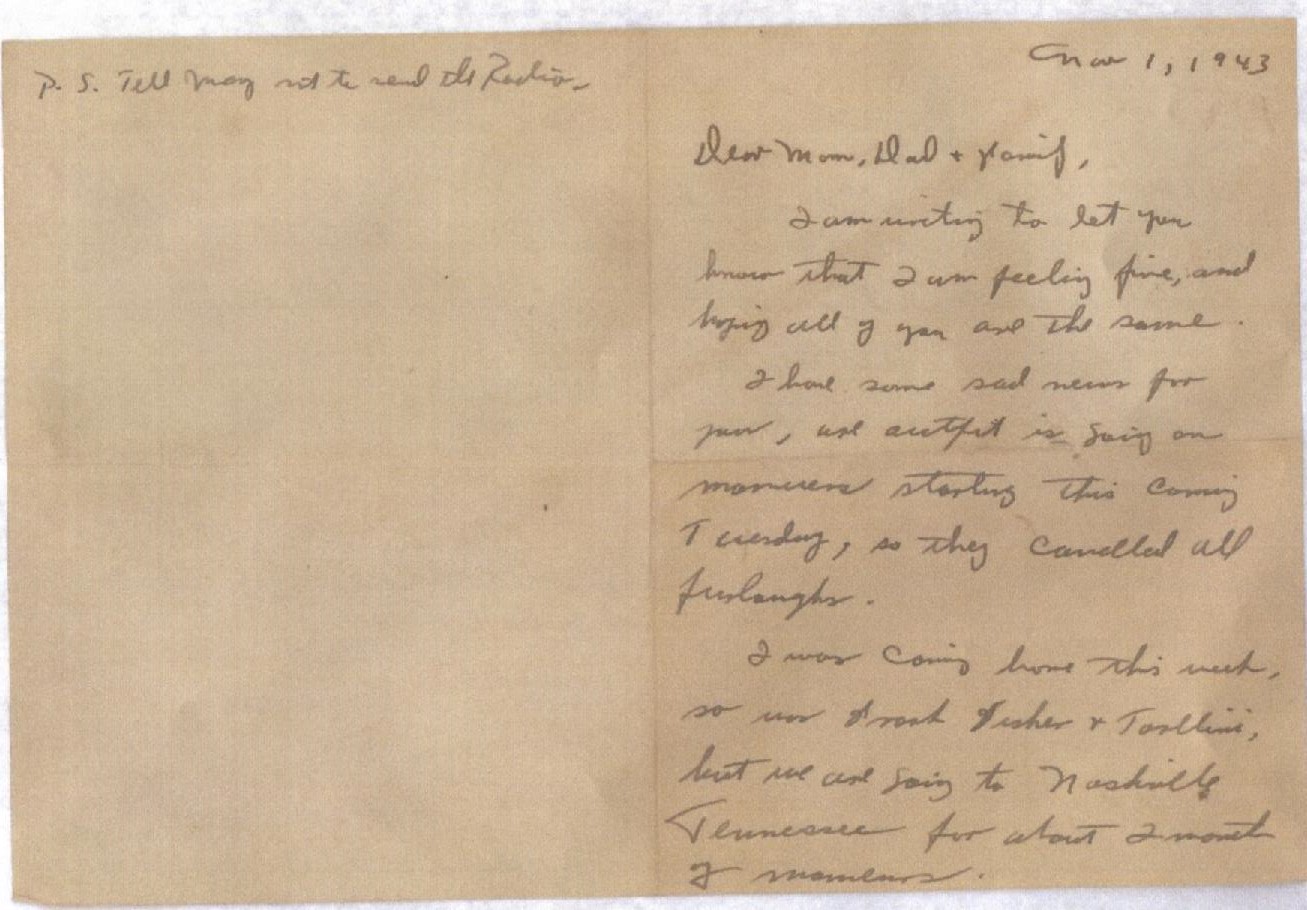 P. S. Tell May not to send the Radio.
Nov 1, 1943
Dear Mom, Dad + Family,
I am writing to let you
know that I am feeling fine, and
hoping all of you are the same.
I have some sad news for
you, are outfit is going on
manuvers starting this coming
Tuesday, so they cancelled all
furloughs.
I was coming home this week,
so was Frank Fisher +
but we are going to Nashville
Tennessee for about 2 month
of manuvers.